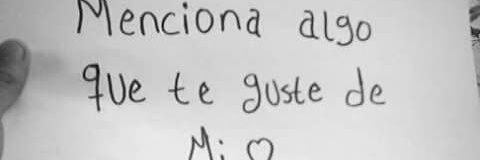 Menciona algo
que te guste de
Mi ♡